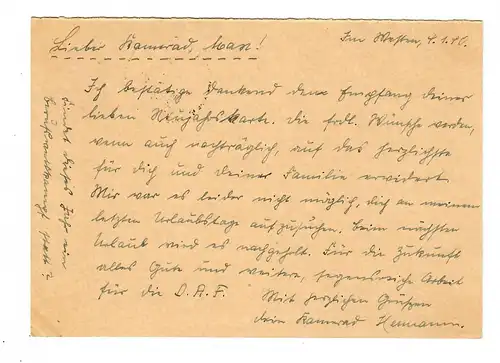 Im Westen, 4.1.40.
Lieber Kamerad, Max!
Ich bestätige dankend den Empfang deiner
lieben Neujahrskarte. Die frdl. Wünsche werden,
wenn auch nachträglich, auf das herzlichste
für dich und deiner Familie erwidert.
Mir war es leider nicht möglich, dich an meinem
letzten Urlaubstage aufzusuchen. Beim nächsten
Urlaub wird es nachgeholt. Für die Zukunft
alles Gute und weitere, segensreiche Arbeit
für die D.A.F. Mit herzlichen Grüßen
dein Kamerad Hermann.
Findet dieses Jahr ein
Berufswettkampf statt?